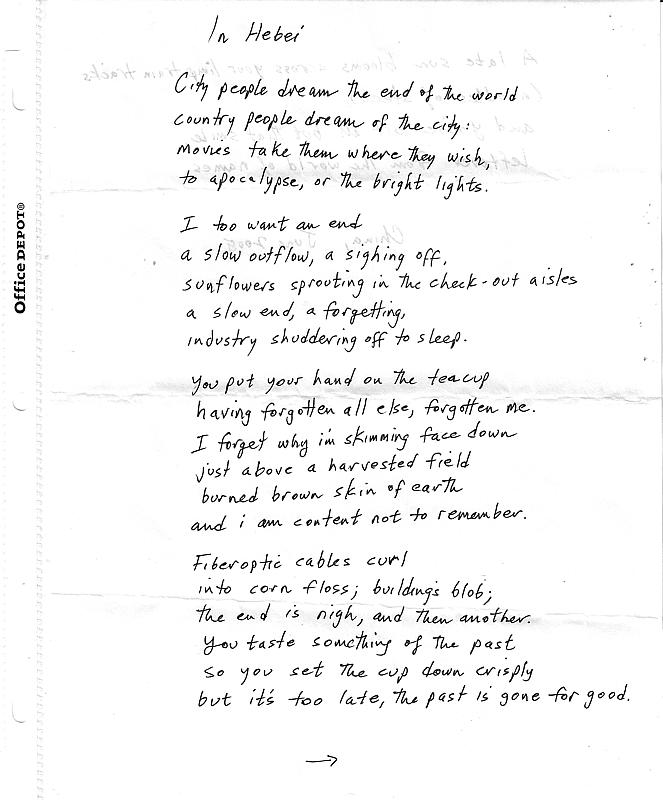 In Hebei
City people dream the end of the world
country people dream of the city:
movies take them where they wish,
to apocalypse, or the bright lights.
I too want an end
a slow outflow, a sighing off,
sunflowers sprouting in the check-out aisles
a slow end, a forgetting,
industry shuddering off to sleep.
You put your hand on the teacup
having forgotten all else, forgotten me.
I forget why i'm skimming face down
just above a harvested field
burned brown skin of earth
and i am content not to remember.
Fiberoptic cables curl
into corn floss; buildings blob;
the end is nigh, and then another.
You taste something of the past
so you set the cup down crisply
but it's too late, the past is gone for good.
→
Office DEPOT®
A late sun blooms across your
train tracks
and
left
the world of names
China, June 2005